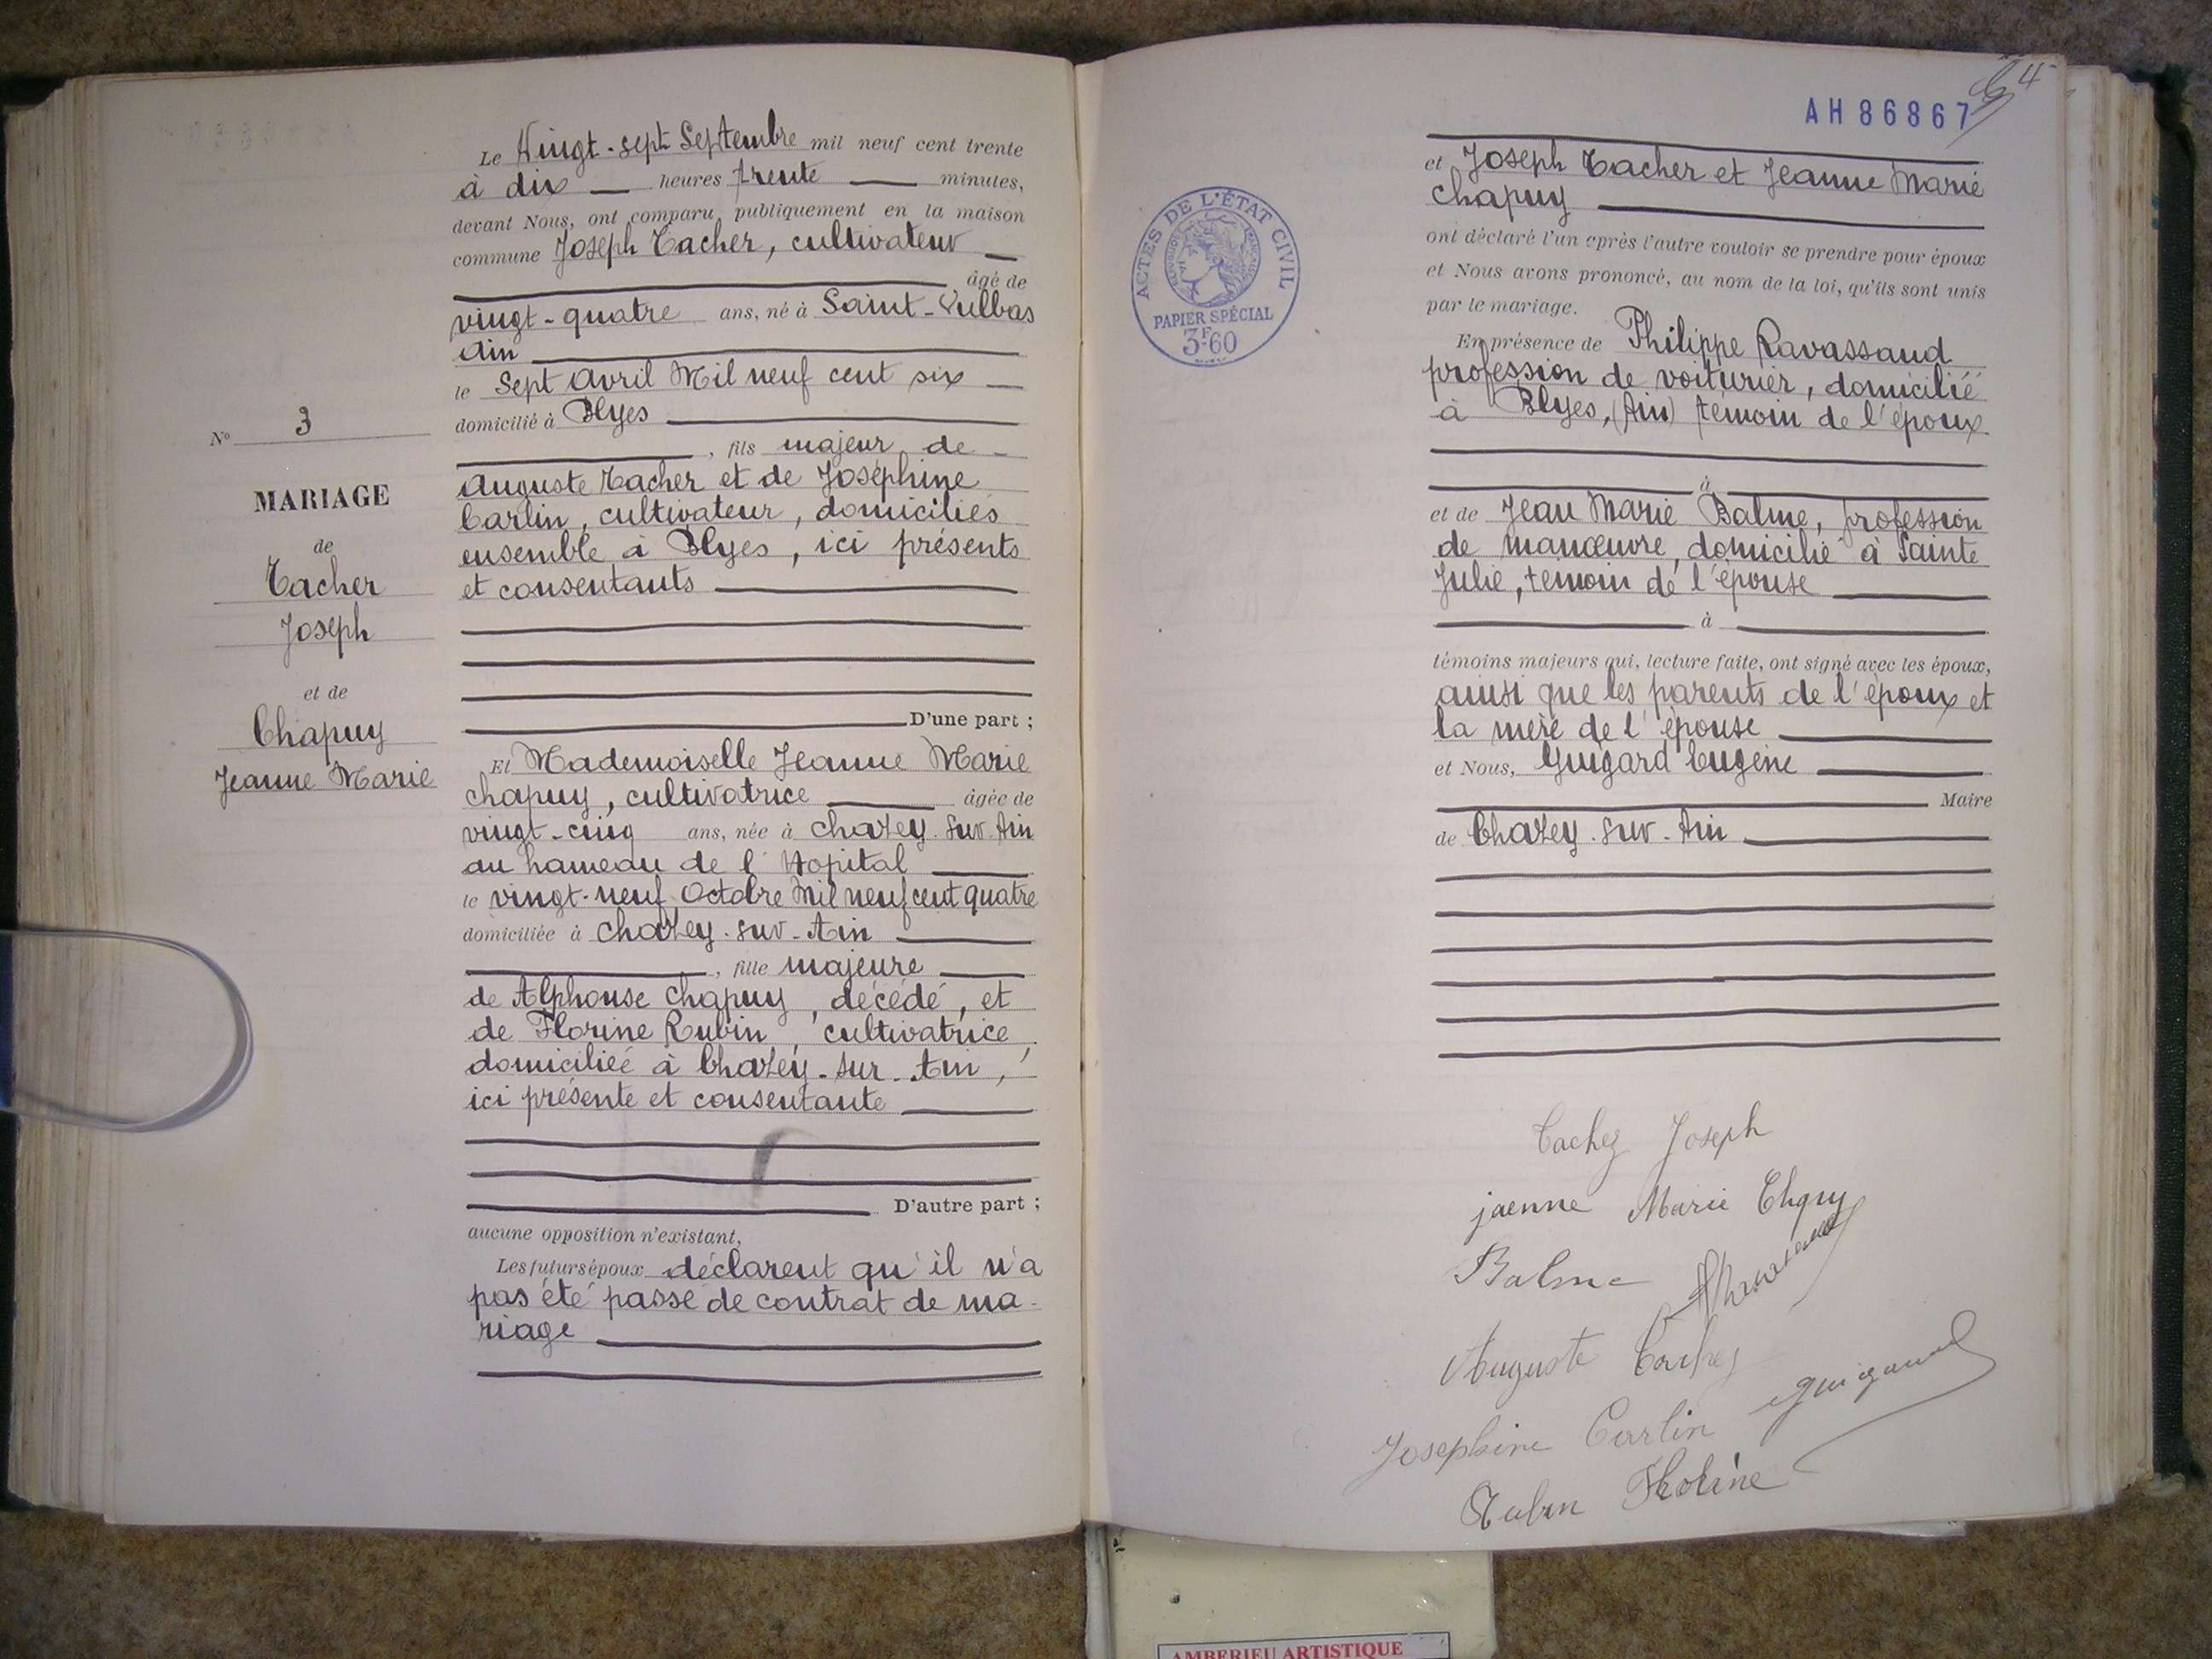 Le Vingt-sept Septembre mil neuf cent trente
à dix heures trente minutes,
devant Nous, ont comparu publiquement en la maison
commune Joseph Cacher, cultivateur
âgé de
vingt-quatre ans, né à Saint-Vulbas
Ain
le Sept Avril Mil neuf cent six
domicilié à Blyes
, fils majeur de
Auguste Cacher et de Joséphine
Carlin, cultivateur, domiciliés
ensemble à Blyes, ici présents
et consentants
D'une part ;
Et Mademoiselle Jeanne Marie
Chapuy, cultivatrice âgée de
vingt-cinq ans, née à Chazey-sur-Ain
au hameau de l'Hopital
le vingt-neuf Octobre Mil neuf cent quatre
domiciliée à Chazey-sur-Ain
, fille majeure
de Alphonse Chapuy, décédé, et
de Florine Rubin, cultivatrice,
domiciliée à Chazey-sur-Ain,
ici présente et consentante
D'autre part ;
aucune opposition n'existant,
Les futurs époux déclarent qu'il n'a
pas été passé de contrat de ma-
riage
N° 3
MARIAGE
de
Cacher
Joseph
et de
Chapuy
Jeanne Marie
4
AH 86867
ACTES DE L'ÉTAT CIVIL
PAPIER SPÉCIAL
3F.60
et Joseph Cacher et Jeanne Marie
Chapuy
ont déclaré l'un après l'autre vouloir se prendre pour époux
et Nous avons prononcé, au nom de la loi, qu'ils sont unis
par le mariage.
En présence de Philippe Ravassaud
profession de voiturier, domicilié
à Blyes, (Ain) témoin de l'époux
à
et de Jean Marie Balme, profession
de manœuvre, domicilié à Sainte
Julie, témoin de l'épouse
à
témoins majeurs qui, lecture faite, ont signé avec les époux,
ainsi que les parents de l'époux et
la mère de l'épouse
et Nous, Guigard Eugène
Maire
de Chazey-sur-Ain
Joseph
jaenne Marie
Balme
Auguste
Josephine Carlin
Rubin
AMBERIEU ARTISTIQUE